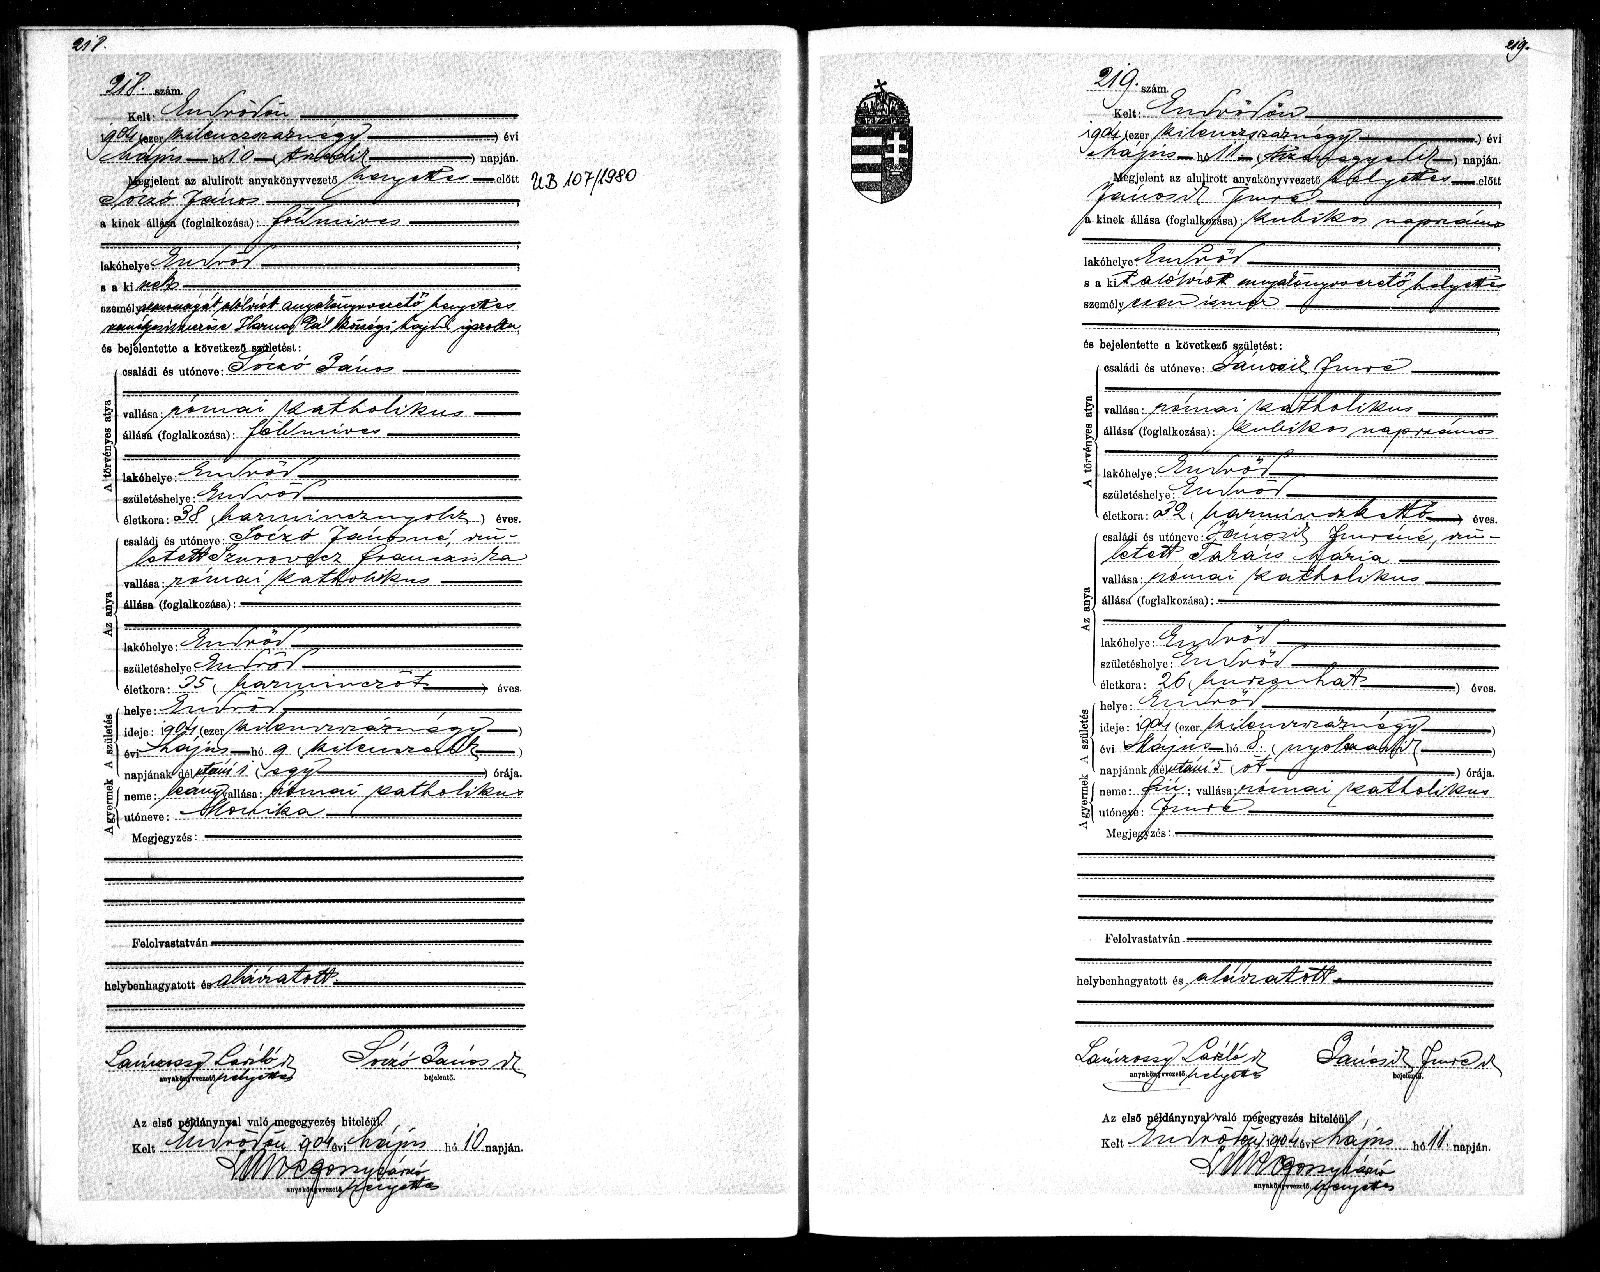 218.
218. szám.
Kelt: Endrődön
1904 (ezer kilenczszáznégy) évi
Május hó 10 (tizedik) napján.
Megjelent az alulirott anyakönyvvezető helyettes előtt
Sóczó János
a kinek állása (foglalkozása): földmives
lakóhelye: Endrőd
s a kinek
személyazonosságát alólirott anyakönyvvezető helyettes
Pál községi hajdú igazolta,
és bejelentette a következő születést:
A törvényes atya
családi és utóneve: Sóczó János
vallása: római katholikus
állása (foglalkozása): földmives
lakóhelye: Endrőd
születéshelye: Endrőd
életkora: 38 (harmincznyolcz) éves.
Az anya
családi és utóneve: Sóczó Jánosné, szü-
letett Szurovecz Francziska
vallása: római katholikus
állása (foglalkozása):
lakóhelye: Endrőd
születéshelye: Endrőd
életkora: 35 (harminczöt) éves.
A születés
helye: Endrőd
ideje: 1904 (ezer kilenczszáznégy)
évi Május hó 9 (kilenczedik)
napjának délutáni 1 (egy) órája.
A gyermek
neme: leány; vallása: római katholikus
utóneve: Monika
Megjegyzés:
Felolvastatván
helybenhagyatott és aláíratott.
László
anyakönyvvezető helyettes
Sóczó János
bejelentő.
Az első példánynyal való megegyezés hiteléül.
Kelt Endrődön 1904 évi Május hó 10 napján.
anyakönyvvezető helyettes
UB 107/1980
219.
219. szám.
Kelt: Endrődön
1904 (ezer kilenczszáznégy) évi
Május hó 11 (tizenegyedik) napján.
Megjelent az alulirott anyakönyvvezető helyettes előtt
Jánosik Imre
a kinek állása (foglalkozása): kubikos napszámos
lakóhelye: Endrőd
s a kit alólirott anyakönyvvezető helyettes
személyesen ismer
és bejelentette a következő születést:
A törvényes atya
családi és utóneve: Jánosik Imre
vallása: római katholikus
állása (foglalkozása): kubikos napszámos
lakóhelye: Endrőd
születéshelye: Endrőd
életkora: 32 (harminczkettő) éves.
Az anya
családi és utóneve: Jánosik Imréné, szü-
letett Takács Mária
vallása: római katholikus
állása (foglalkozása):
lakóhelye: Endrőd
születéshelye: Endrőd
életkora: 26 (huszonhat) éves.
A születés
helye: Endrőd
ideje: 1904 (ezer kilenczszáznégy)
évi Május hó 8 (nyolczadik)
napjának délutáni 5 (öt) órája.
A gyermek
neme: fiú; vallása: római katholikus
utóneve: Imre
Megjegyzés:
Felolvastatván
helybenhagyatott és aláíratott.
László
anyakönyvvezető helyettes
Jánosik Imre
bejelentő.
Az első példánynyal való megegyezés hiteléül.
Kelt Endrődön 1904 évi Május hó 11 napján.
anyakönyvvezető helyettes